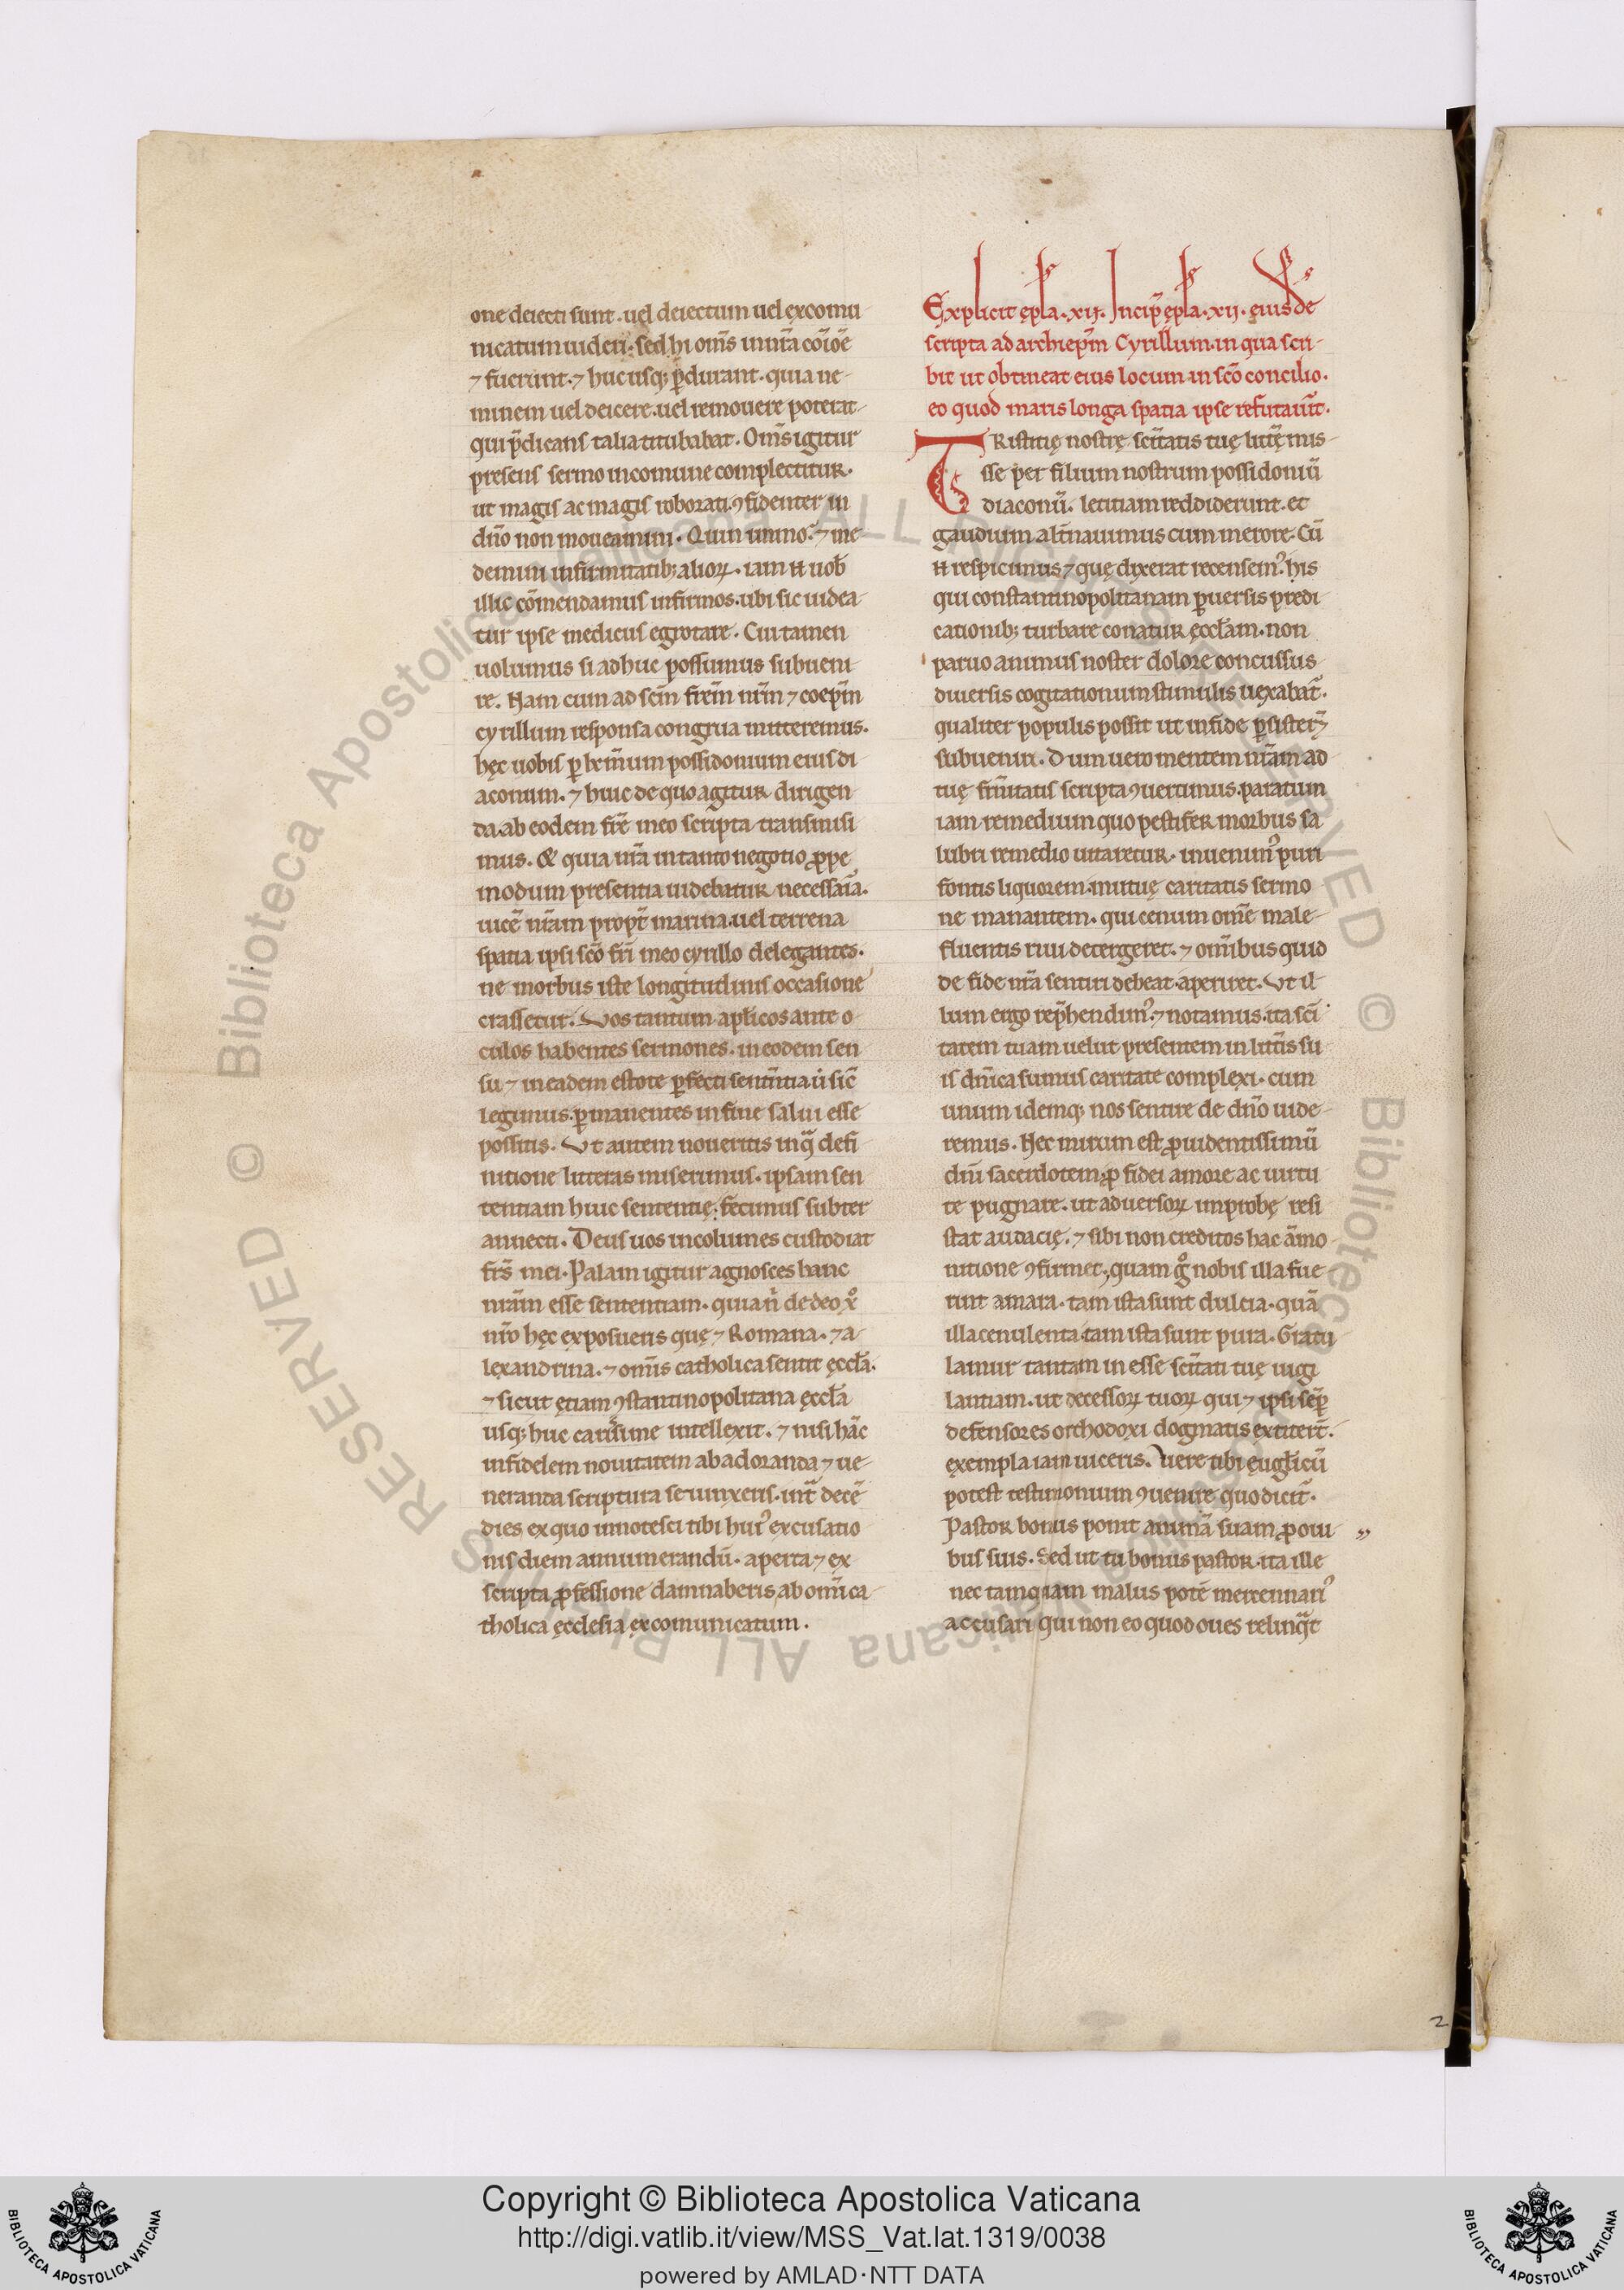 one deiecti sunt. uel deiectum uel excomu
nicatum uideri. sed hi oms in nra coioe
⁊ fuerunt. ⁊ hucusq; pdurant. quia ne
minem uel deicere. uel remouere poterat
qui pdicans talia titubabat. Oms igitur
presens sermo incomune complectitur.
ut magis ac magis roborati. ꝯfidenter in
dno non moueamini. Quin immo. ⁊ me
demini infirmitatib; alioꝝ. iam
illic comendamus infirmos. ubi sic uidea
tur ipse medicus egrotare. Cui tamen
uolumus si adhuc possumus subueni
re. Nam cum ad scm frem nrm ⁊ coepm
cyrillum responsa congrua mitteremus.
hęc uobis p possidonium eius di
aconum. ⁊ huic de quo agitur dirigen
da. ab eodem fre meo scripta transmisi
mus. & quia nra in tanto negotio ppe
modum presentia uidebatur necessaria.
uice nram propt marina. uel terrena
spatia ipsi sco fri meo cyrillo delegantes.
ne morbus iste longitudinis occasione
crassetur. Vos tantum aplicos ante o
culos habentes sermones. in eodem sen
su ⁊ in eadem estote pfecti sententia ut sic
legimus. pmanentes in fine salui esse
possitis. Vt autem noueritis in q defi
nitione litteras miserimus. ipsam sen
tentiam huic sententię. fecimus subter
annecti. Deus uos incolumes custodiat
frs mei. Palam igitur agnosces hanc
nram esse sententiam. quia n de deo xo
nro hęc exposueris quę ⁊ Romana. ⁊ a
lexandrina. ⁊ omis catholica sentit ęccla.
⁊ sicut ętiam ꝯstantinopolitana ęccla
usq; huc intellexit. ⁊ nisi hac
infidelem nouitatem ab adoranda ⁊ ue
neranda scriptura seiunxeris. int dece
dies ex quo innotesci tibi hui excusatio
nis diem annumerandu. aperta ⁊ ex
scripta pfessione damnaberis, ab omi ca
tholica ęcclesia excomunicatum.
Explicit epla. xij. Incip epla. xij. eiusde
scripta ad archiepm Cyrillum. in qua scri
bit ut obtineat eius locum in sco concilio.
eo quod maris longa spatia ipse refutauit.
TRistitię nostrę scitatis tuę litę mis
sse per filium nostrum possidoniu
diaconu. letitiam reddiderunt. et
gaudium altnauimus cum merore. Cu
respicimus ⁊ quę dixerat recensem. his
qui constantinopolitanam puersis predi
cationib; turbare conatur ęcclam. non
paruo animus noster dolore concussus
diuersis cogitationum stimulis uexabat.
qualiter populis possit ut in fide psister
subueniri. Dum uero mentem nram ad
tuę frnitatis scripta ꝯuertimus. paratum
iam remedium quo pestifer morbus sa
lubri remedio uitaretur. inuenim puri
fontis liquorem. mutuę caritatis sermo
ne manantem. qui cenum ome male
fluentis riui detergeret. ⁊ omibus quid
de fide nra sentiri debeat aperiret. Vt il
lum ergo rephendim. ⁊ notamus. ita sci
tatem tuam uelut presentem in littis su
is dnica sumus caritate complexi. cum
unum idemq; nos sentire de dno uide
remus. Nec mirum est puidentissimu
dni sacerdotem p fidei amore ac uirtu
te pugnare. ut aduersoꝝ improbę resi
stat audacię. ⁊ sibi non creditos hac amo
nitione ꝯfirmet, quam g nobis illa fue
runt amara. tam ista sunt dulcia. qua
illa cenulenta tam ista sunt pura. Gratu
lamur tantam in esse scitati tuę uigi
lantiam. ut decessoꝝ tuoꝝ qui ⁊ ipsi sep
defensores orthodoxi dogmatis extiterit.
exempla iam uiceris. Vere tibi euglicu
potest testimonium ꝯuenire quo dicit.
Pastor bonus ponit anima suam p oui
bus suis. Sed ut tu bonus pastor. ita ille
nec tamquam malus pote mercennari
accusari qui non eo quod oues relinqt
2
© Biblioteca Apostolica Vaticana ALL RIGHTS RESERVED © Biblioteca Apostolica Vaticana ALL RIGHTS RESERVED
Copyright © Biblioteca Apostolica Vaticana
http://digi.vatlib.it/view/MSS_Vat.lat.1319/0038
powered by AMLAD·NTT DATA
BIBLIOTECA APOSTOLICA VATICANA
BIBLIOTECA APOSTOLICA VATICANA